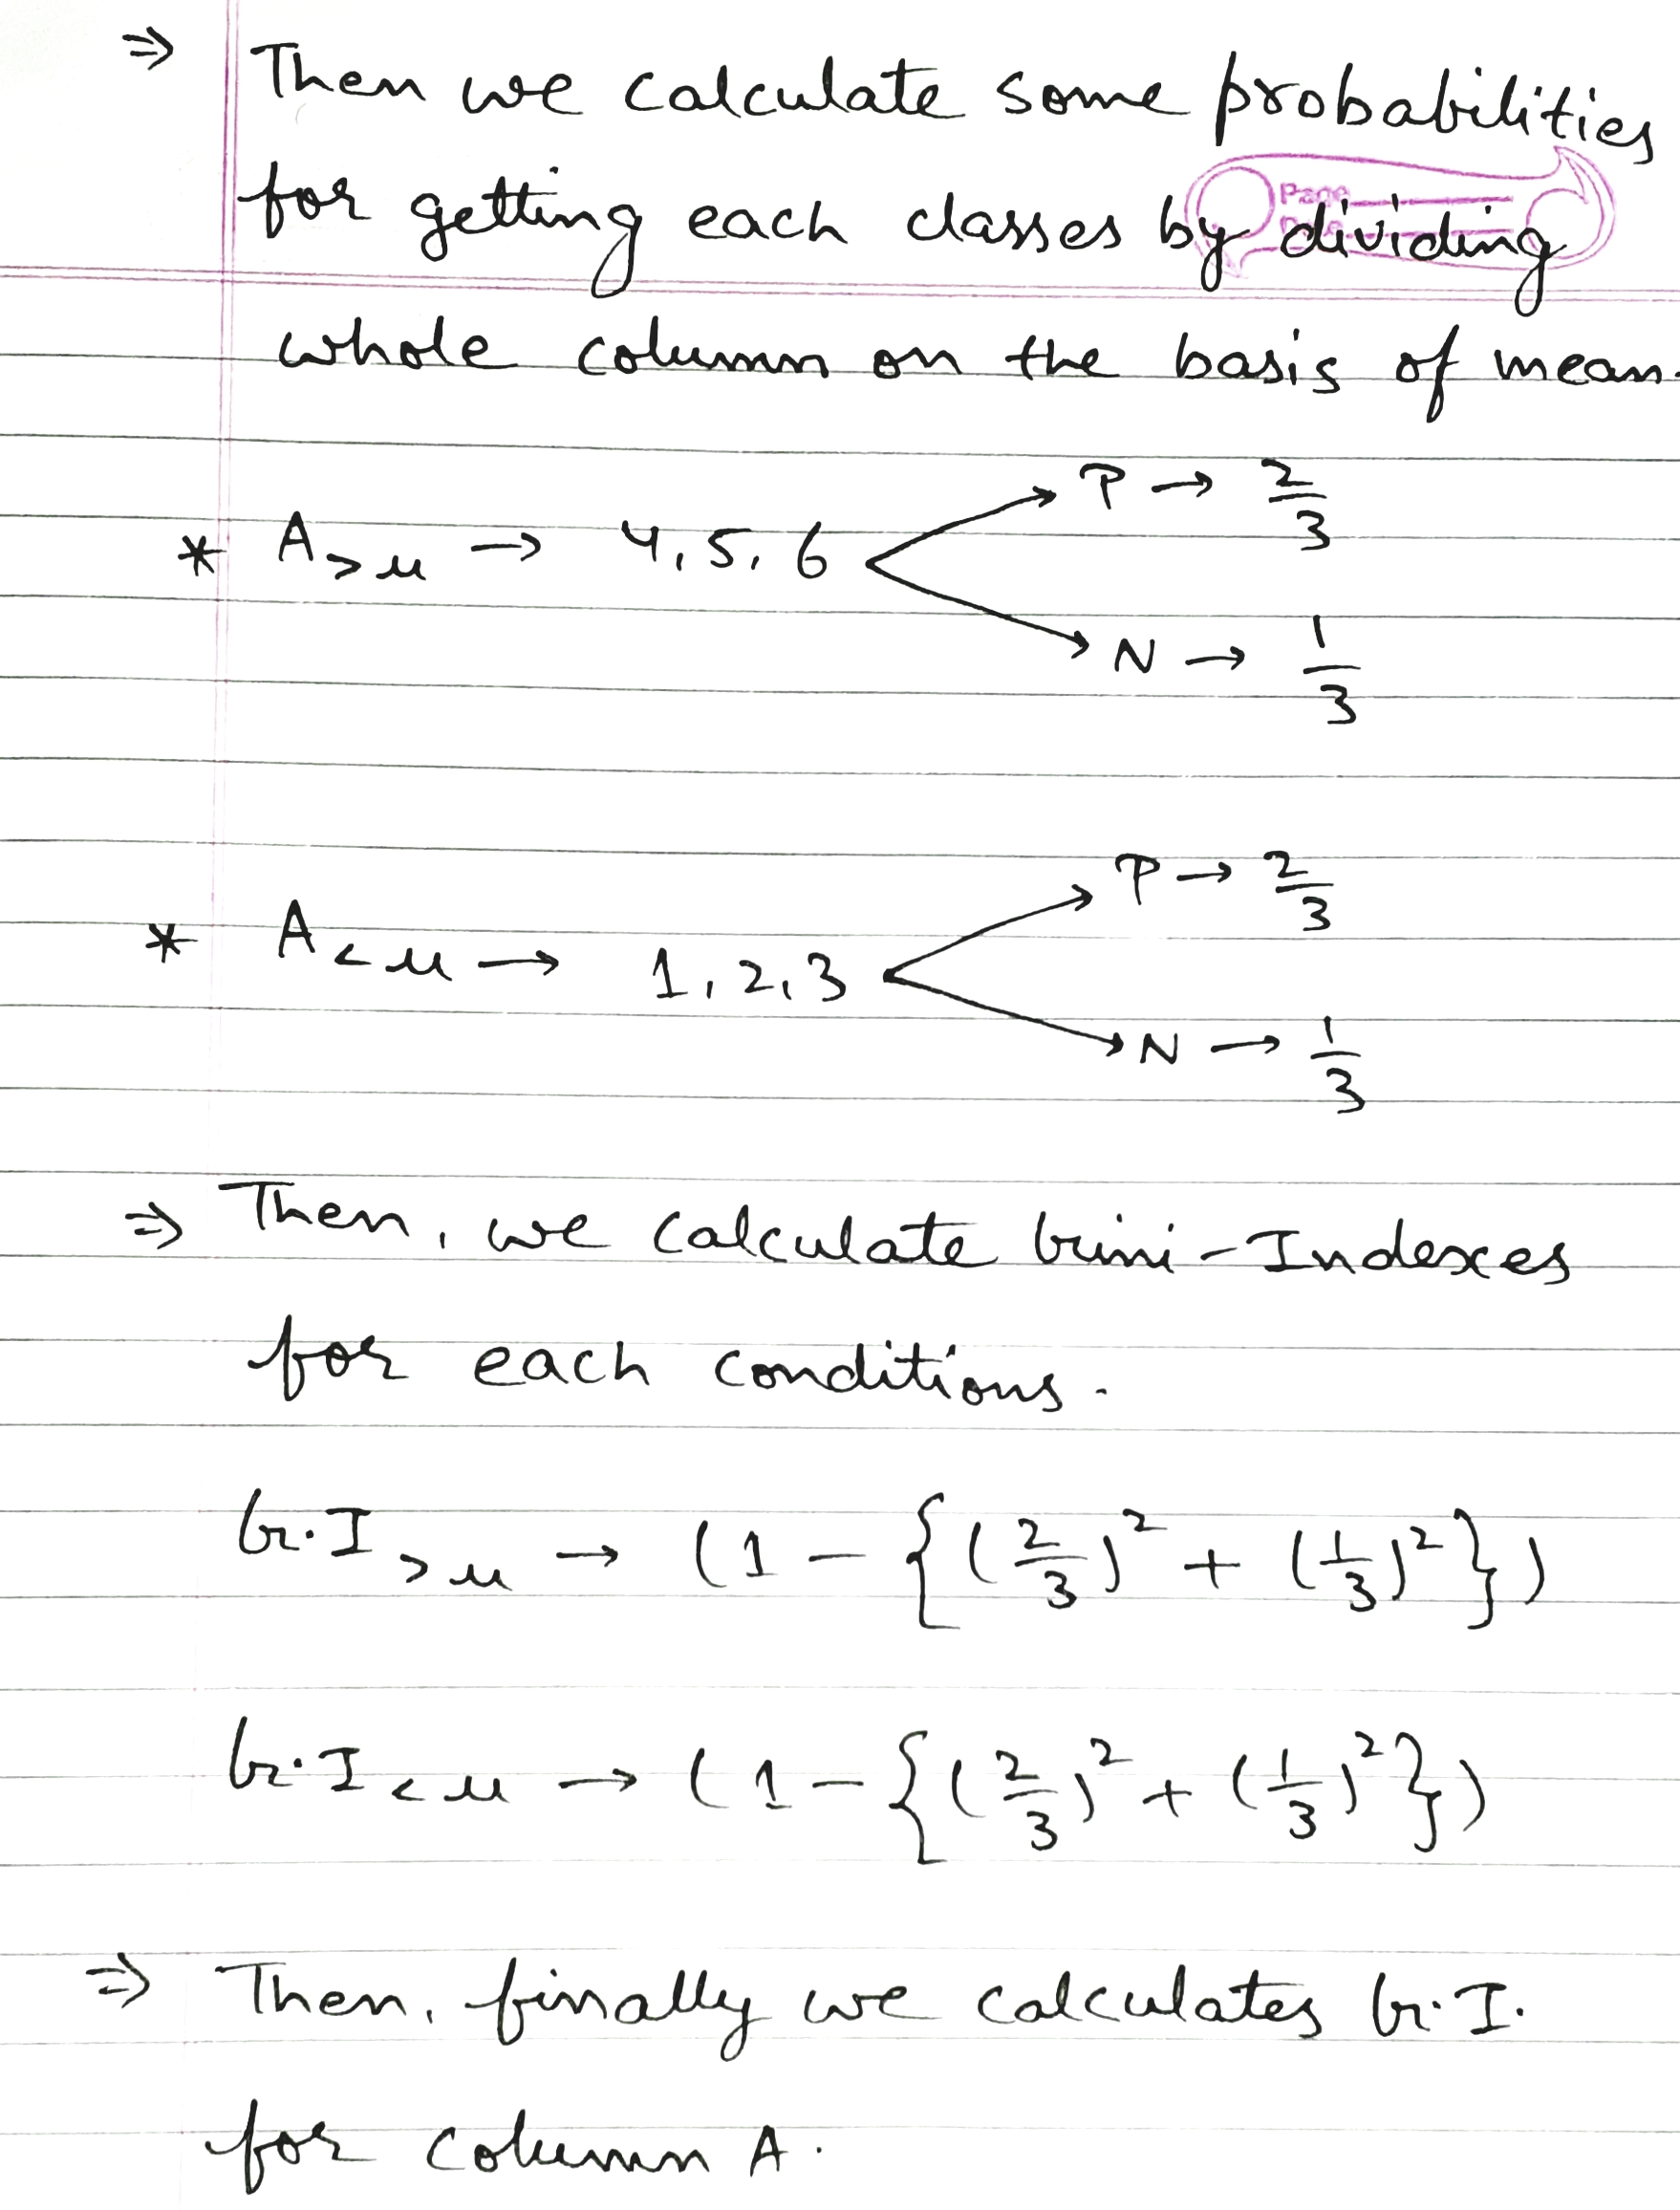 ⇒ Then we calculate some probabilities
Page
for getting each classes by dividing
whole column on the basis of mean.
P → 2/3
* A>μ → 4, 5, 6
N → 1/3
P → 2/3
* A<μ → 1, 2, 3
N → 1/3
⇒ Then, we calculate Gini-Indexes
for each conditions.
G.I>μ → (1 - {(2/3)² + (1/3)²})
G.I<μ → (1 - {(2/3)² + (1/3)²})
⇒ Then, finally we calculates G.I.
for column A.